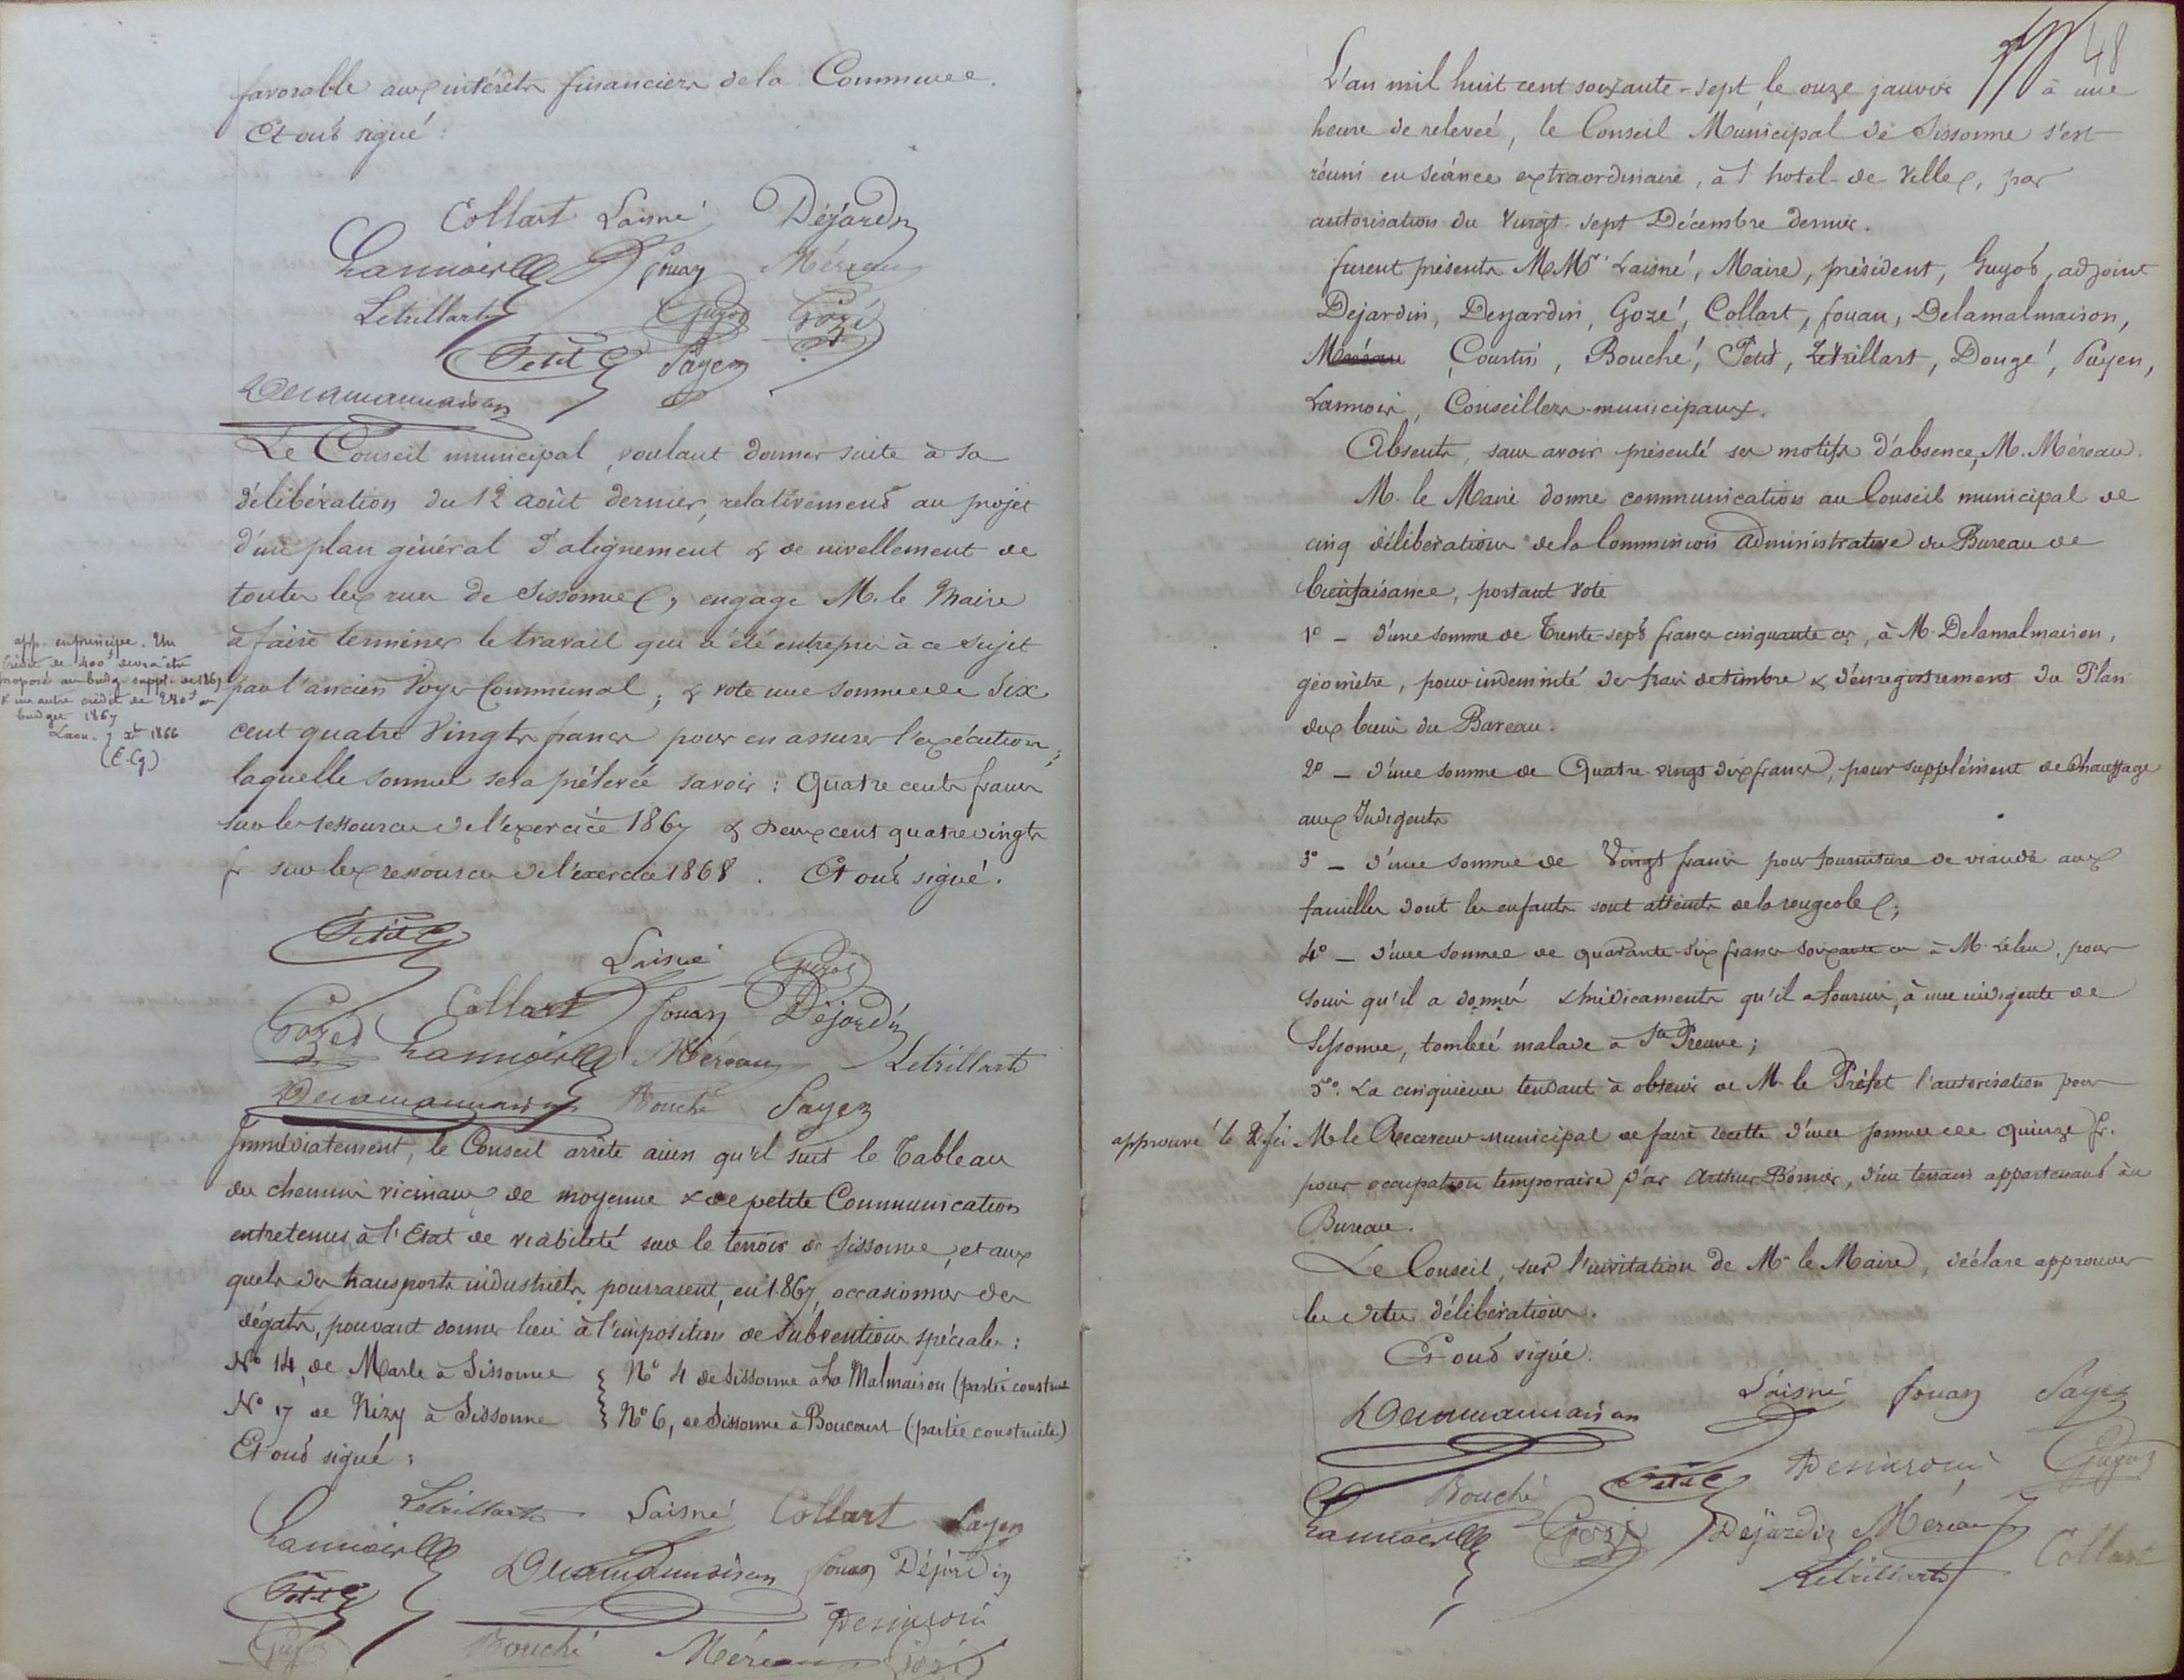 favorable aux intérêts financiers de la Commune.
Et ont signé :
Collart Laisné Déjardin
Lannoir Fouan Méreau
Letrillart Guyot Gozé
Petit Payen
Delamalmaison
Le Conseil municipal, voulant donner suite à sa
délibération du 12 août dernier, relativement au projet
d'un plan général d'alignement & de nivellement de
toutes les rues de Sissonne, engage M. le Maire
à faire terminer le travail qui a été entrepris à ce sujet
par l'ancien Voyer Communal ; & vote une somme de Six
cent quatre Vingts francs pour en assurer l'exécution ;
laquelle somme sera prélevée savoir : Quatre cents francs
sur les ressources de l'exercice 1867 & Deux cent quatre vingts
fr. sur les ressources de l'exercice 1868. Et ont signé.
app. en principe. Un
crédit de 400f devra être
proposé au budg. suppl. de 1867
& un autre crédit de 280f au
budget 1867
Laon. 7 Xbre 1866
(E.G)
Petit
Laisné Guyot
Collart Fouan Déjardin
Gozé Lannoir Méreau Letrillart
Delamalmaison Bouché Payen
Immédiatement, le Conseil arrête ainsi qu'il suit le Tableau
des chemins vicinaux de moyenne & de petite Communication
entretenus à l'Etat de viabilité sur le terroir de Sissonne, et aux
quels des transports industriels pourraient, en 1867, occasionner des
dégats, pouvant donner lieu à l'imposition de Subventions spéciales :
No 14, de Marle à Sissonne { No 4 de Sissonne à La Malmaison (partie construite
No 17 de Nizy à Sissonne { No 6, de Sissonne à Boucourt (partie construite)
Et ont signé :
Letrillart Laisné Collart Payen
Lannoir Delamalmaison Fouan Déjardin
Petit
Guyot Bouché Méreau Gozé
48
L'an mil huit cent soixante-sept, le onze janvier à une
heure de relevée, le Conseil Municipal de Sissonne s'est
réuni en séance extraordinaire, à l'hotel-de-Ville, par
autorisation du Vingt-sept Décembre dernier.
furent présents M.Mrs Laisné, Maire, président, Guyot, adjoint
Dejardin, Desjardin, Gozé, Collart, fouan, Delamalmaison,
Méreau, Courtin, Bouché, Petit, Letrillart, Dougé, Payen,
Lannoir, Conseillers municipaux.
Absents, sans avoir présenté ses motifs d'absence, M. Méreau.
M. le Maire donne communication au Conseil municipal de
cinq délibérations de la Commission Administrative du Bureau de
bienfaisance, portant vote
1o _ d'une somme de Trente-sept francs cinquante ces, à M. Delamalmaison,
géomètre, pour indemnité des frais de timbre & d'enregistrement du Plan
des biens du Bureau.
2o _ d'une somme de Quatre-vingt dix francs, pour supplément de chauffage
aux Indigents
3o _ d'une somme de Vingt francs pour fourniture de viande aux
familles dont les enfants sont atteints de la rougeole ;
4o _ d'une somme de quarante-six francs soixante ces à M. Leleu, pour
soins qu'il a donnés & médicaments qu'il a fournis, à une indigente de
Sissonne, tombée malade à Ste Preuve ;
5o. La cinquième tendant à obtenir de M. le Préfet l'autorisation pour
approuvé le 2 fév M. le Receveur municipal de faire recette d'une somme de quinze fr.
pour occupation temporaire par Arthur Bornier, d'un terrain appartenant au
Bureau.
Le Conseil, sur l'invitation de Mr le Maire, déclare approuver
les dites délibérations.
Et ont signé.
Delamalmaison Laisné fouan Payen
Bouché Petit Guyot
Lannoir Gozé Déjardin Méreau
Letrillart Collart